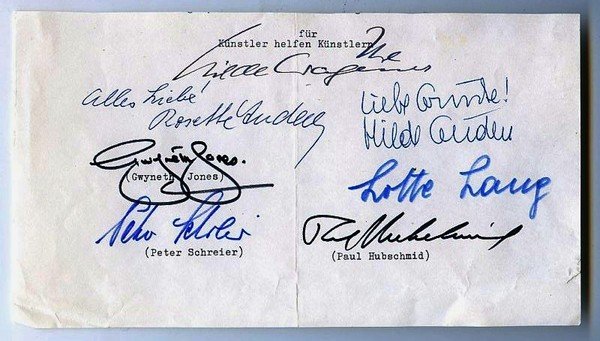 für
Künstler helfen Künstlern
Ihre
Hilde
Alles Liebe!
Rosette Anday
Liebe Grüße!
Hilde Güden
Gwyneth Jones.
(Gwyneth Jones)
Lotte Lang
Peter Schreier
(Peter Schreier)
Paul Hubschmid
(Paul Hubschmid)